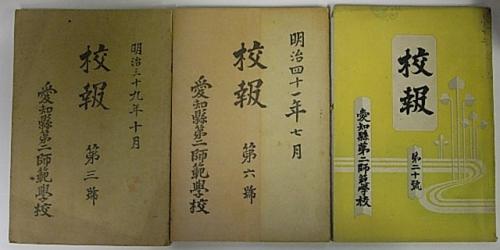 明治三十九年十月
校報
第三號
愛知縣第二師範學校
明治四十年七月
校報
第六號
愛知縣第二師範學校
校報
第二十號
愛知縣第二師範學校